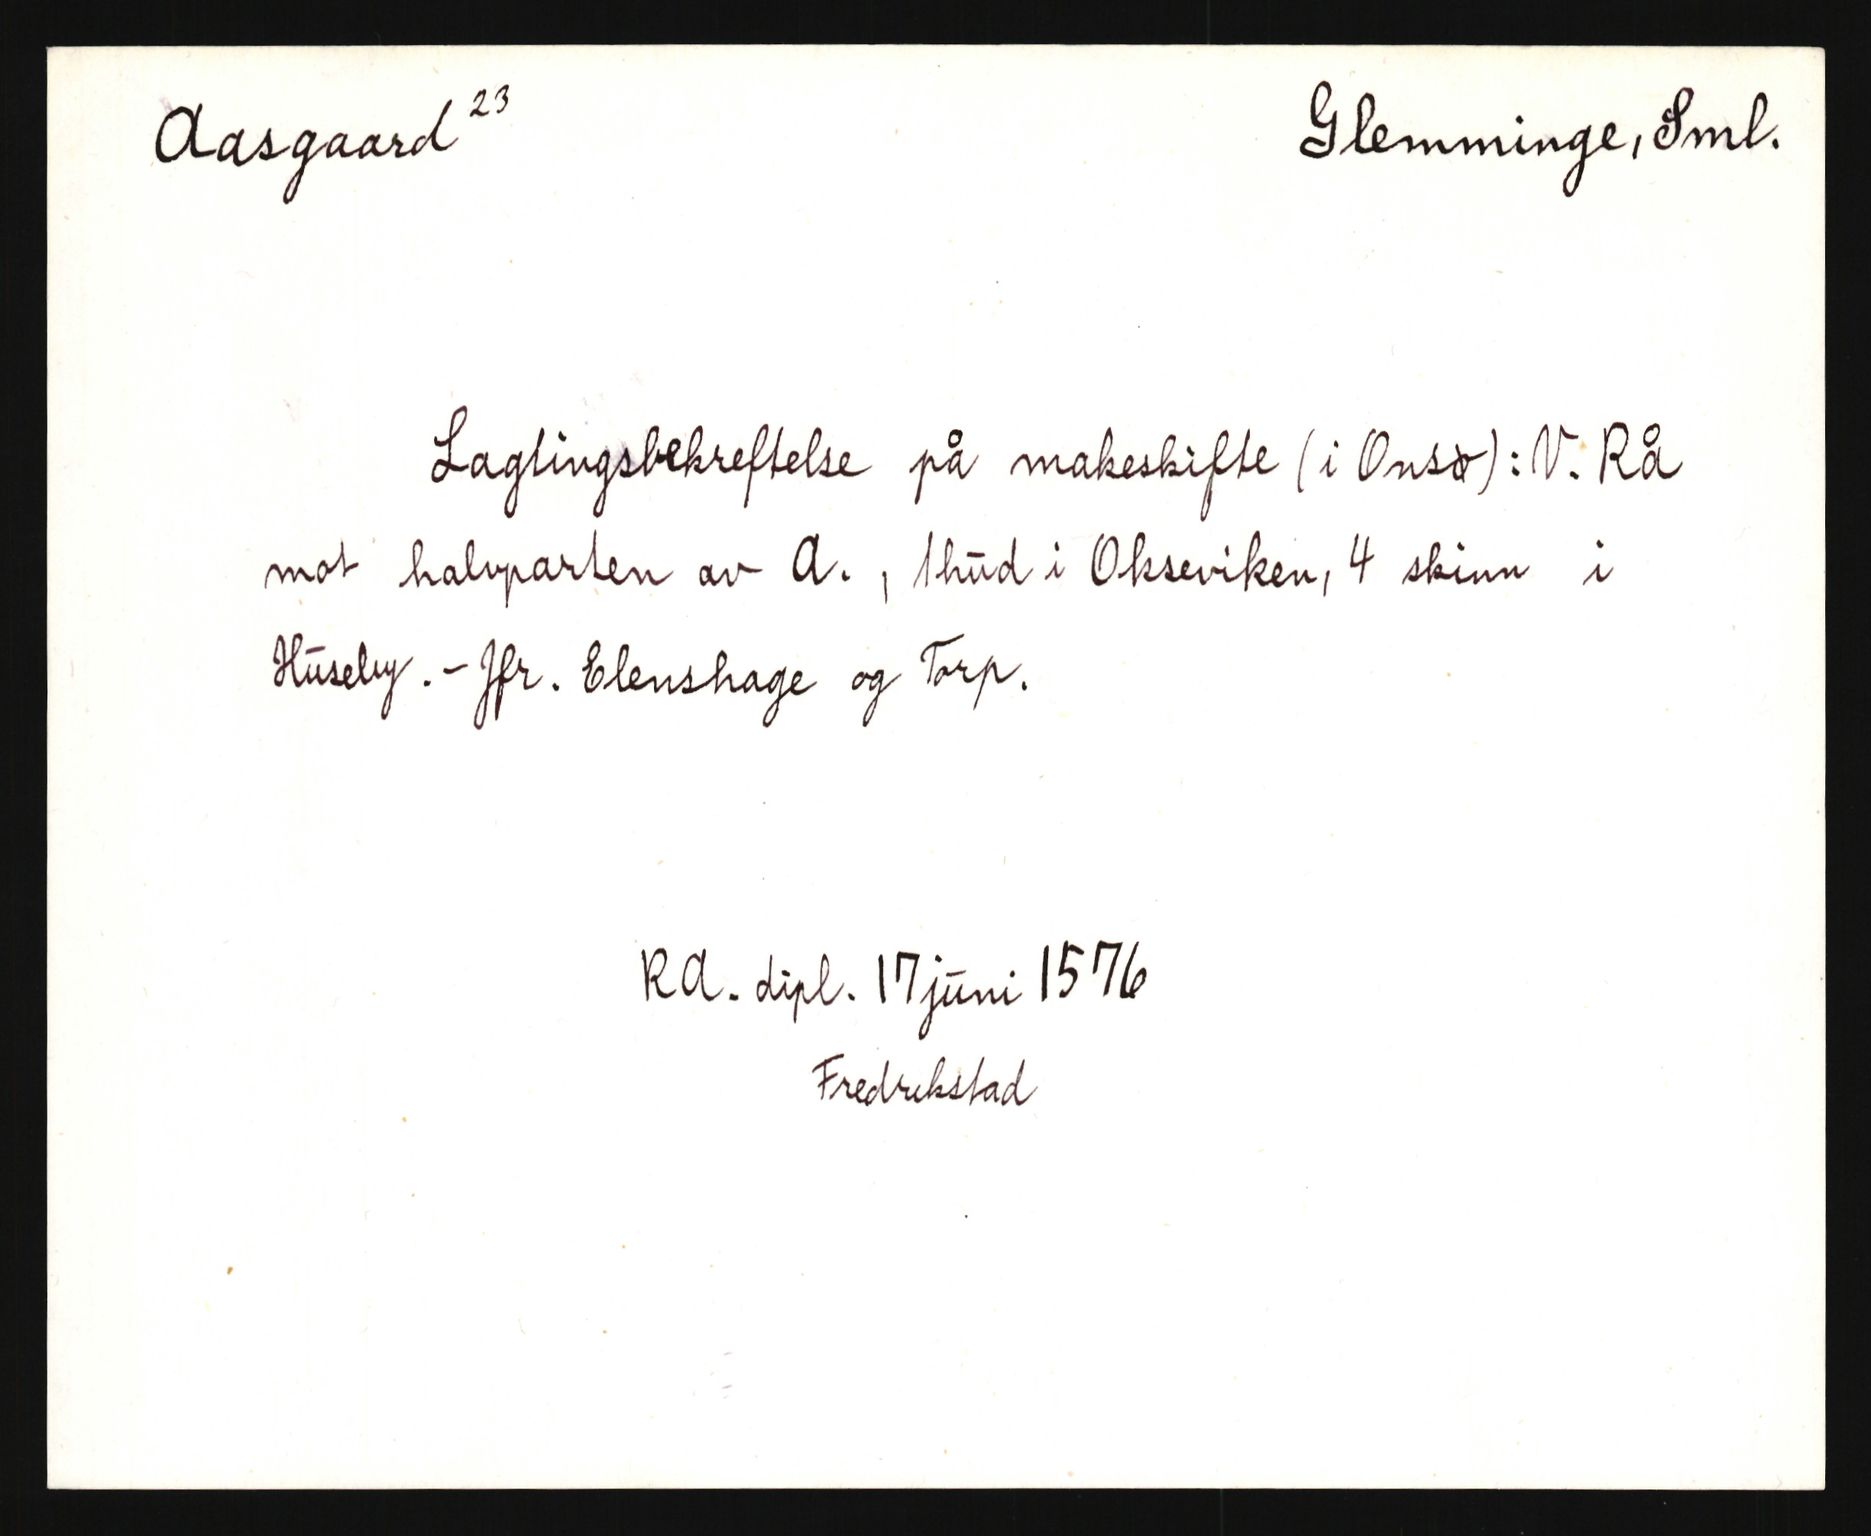 Aasgaard 23 Glemminge, Sml.
Lagtingsbekreftelse på makeskifte (i Onsø): V. Rå
mot halvparten av A., 1 hud i Okseviken, 4 skinn i
Huseby. - Jfr. Elenshage og Torp.
RA. dipl. 17 juni 1576
Fredrikstad